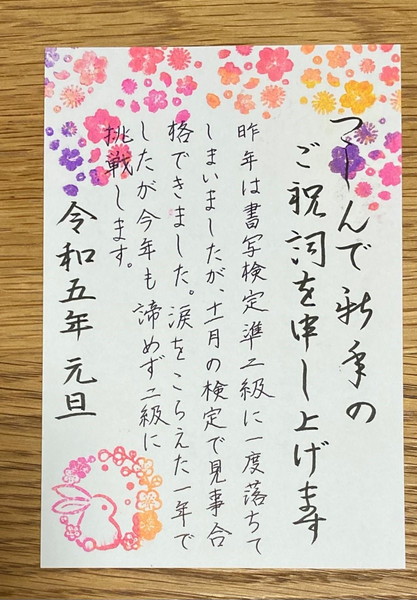 つゝしんで新年の
ご祝詞を申し上げます
昨年は書写検定準二級に一度落ちて
しまいましたが、十一月の検定で見事合
格できました。涙をこらえた一年で
したが今年も諦めず二級に
挑戦します。
令和五年 元旦